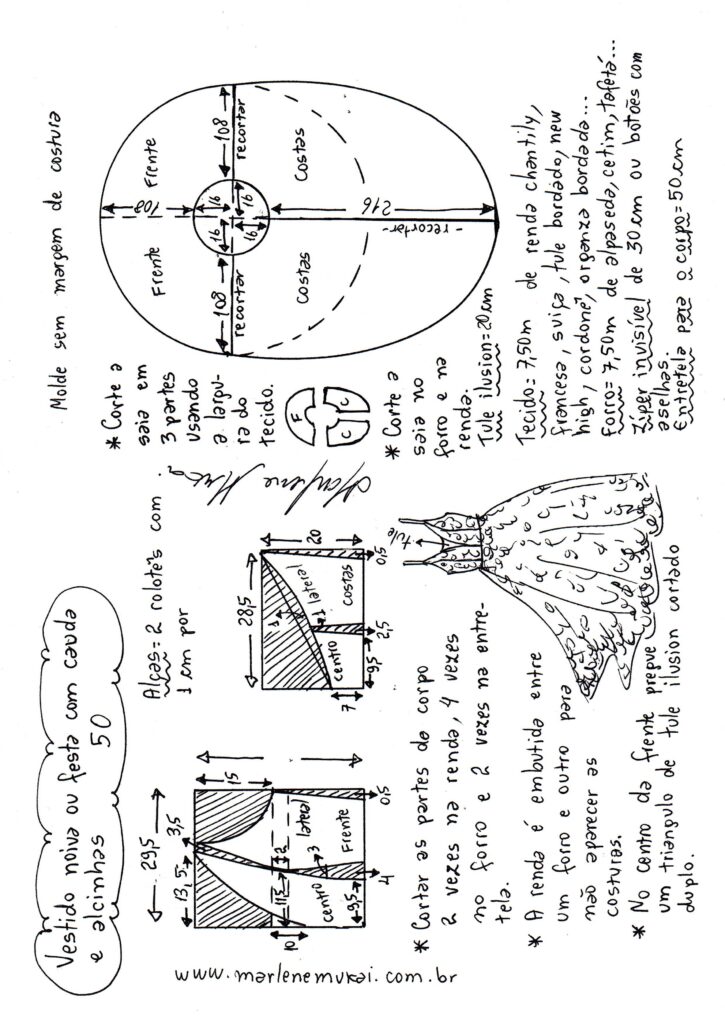 Vestido noiva ou festa com cauda
e alcinhas 50
29,5
13,5
3,5
15
2
11,5
3
10
centro
lateral
Frente
9,5
4
0,5
Alças=2 rolotês com
1 cm por
28,5
20
1
lateral
centro
costas
7
9,5
2,5
0,5
www.marlenemukai.com.br
* Cortar as partes do corpo
2 vezes na renda, 4 vezes
no forro e 2 vezes na entre-
tela.
* A renda é embutida entre
um forro e outro para
não aparecer as
costuras.
* No centro da frente pregue
um triangulo de tule ilusion cortado
duplo.
tule
Marlene Mukai
Molde sem margem de costura
* Corte a
saia em
3 partes
usando
a largu-
ra do
tecido.
F
C
C
* Corte a
saia no
forro e na
renda.
Tule ilusion=20cm
Frente
Frente
108
108
108
recortar
recortar
16
16
16
16
Costas
Costas
216
-recortar-
Tecido=7,50m de renda chantily,
francesa, suiça, tule bordado, new
high, cordonê, organza bordada...
Forro=7,50m de alpaseda, cetim, tafetá...
Zíper invisível de 30cm ou botões com
aselhas.
Entretela para o corpo=50cm